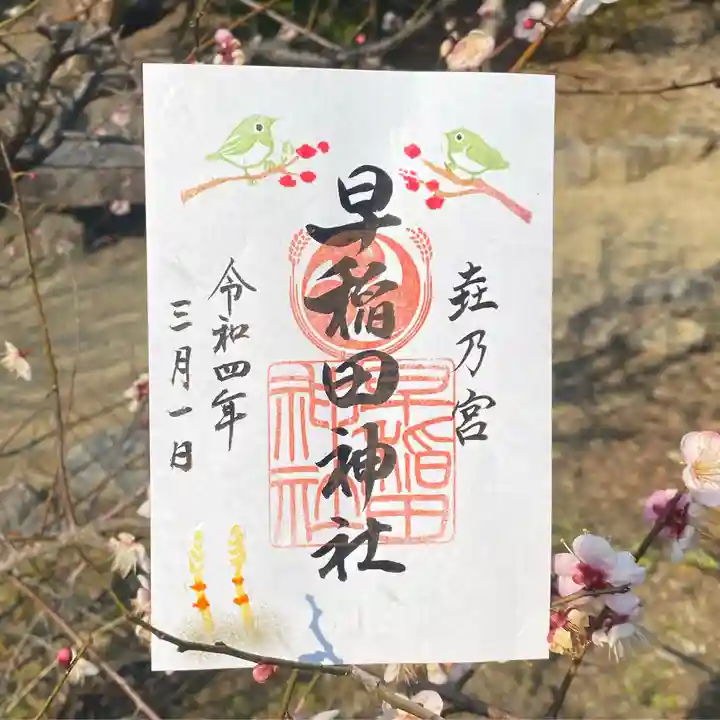 垚乃宮
早稲田神社
早稲田
神社
令和四年
三月一日